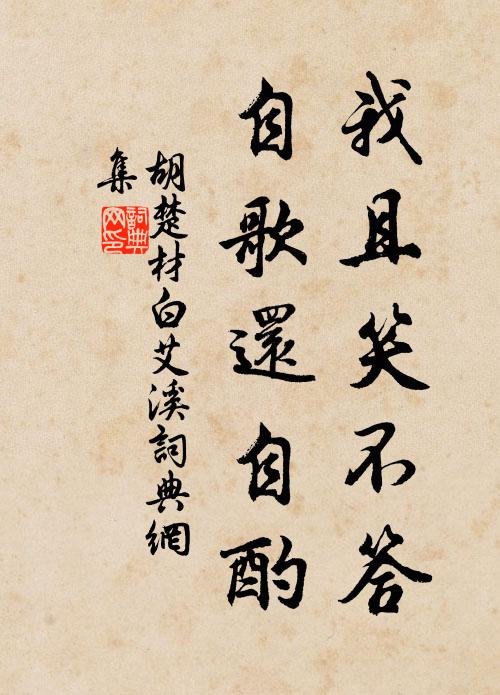 我且笑不答
自歌還自酌
胡楚材白艾溪詞典網
集
詞典
网印